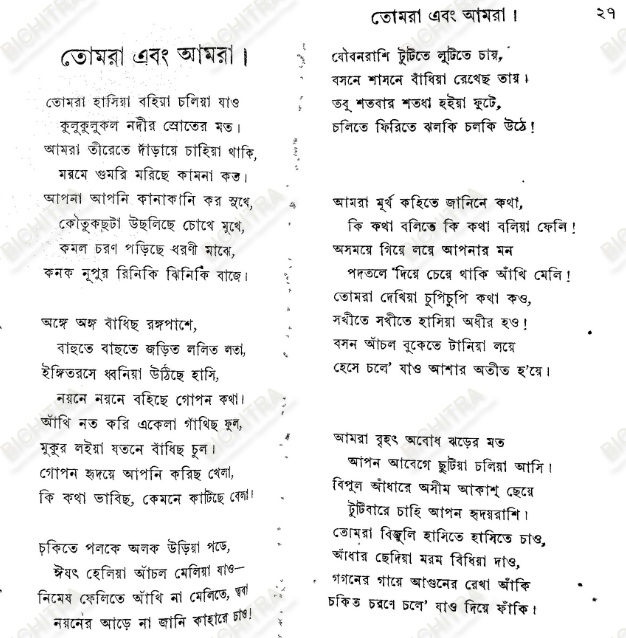 তোমরা এবং আমরা।
তোমরা হাসিয়া বহিয়া চলিয়া যাও
কুলুকুলুকল নদীর স্রোতের মত।
আমরা তীরেতে দাঁড়ায়ে চাহিয়া থাকি,
মরমে গুমরি মরিছে কামনা কত।
আপনা আপনি কানাকানি কর সুখে,
কৌতুকছটা উছলিছে চোখে মুখে,
কমল চরণ পড়িছে ধরণী মাঝে,
কনক নূপুর রিনিকি ঝিনিকি বাজে।
অঙ্গে অঙ্গ বাঁধিছ রঙ্গপাশে,
বাহুতে বাহুতে জড়িত ললিত লতা,
ইঙ্গিতরসে ধ্বনিয়া উঠিছে হাসি,
নয়নে নয়নে বহিছে গোপন কথা।
আঁখি নত করি একেলা গাঁথিছ ফুল,
মুকুর লইয়া যতনে বাঁধিছ চুল।
গোপন হৃদয়ে আপনি করিছ খেলা,
কি কথা ভাবিছ, কেমনে কাটিছে বেলা!
চকিতে পলকে অলক উড়িয়া পড়ে,
ঈষৎ হেলিয়া আঁচল মেলিয়া যাও—
নিমেষ ফেলিতে আঁখি না মেলিতে, ত্বরা
নয়নের আড়ে না জানি কাহারে চাও!
তোমরা এবং আমরা। ২৭
যৌবনরাশি টুটিতে লুটিতে চায়,
বসনে শাসনে বাঁধিয়া রেখেছ তায়।
তবু শতবার শতধা হইয়া ফুটে,
চলিতে ফিরিতে ঝলকি চলকি উঠে!
আমরা মূর্খ কহিতে জানিনে কথা,
কি কথা বলিতে কি কথা বলিয়া ফেলি!
অসময়ে গিয়ে লয়ে আপনার মন
পদতলে দিয়ে চেয়ে থাকি আঁখি মেলি!
তোমরা দেখিয়া চুপিচুপি কথা কও,
সখীতে সখীতে হাসিয়া অধীর হও!
বসন আঁচল বুকেতে টানিয়া লয়ে
হেসে চলে' যাও আশার অতীত হ'য়ে।
আমরা বৃহৎ অবোধ ঝড়ের মত
আপন আবেগে ছুটিয়া চলিয়া আসি।
বিপুল আঁধারে অসীম আকাশ ছেয়ে
টুটিবারে চাহি আপন হৃদয়রাশি।
তোমরা বিজুলি হাসিতে হাসিতে চাও,
আঁধার ছেদিয়া মরম বিঁধিয়া দাও,
গগনের গায়ে আগুনের রেখা আঁকি
চকিত চরণে চলে' যাও দিয়ে ফাঁকি!
BICHITRA